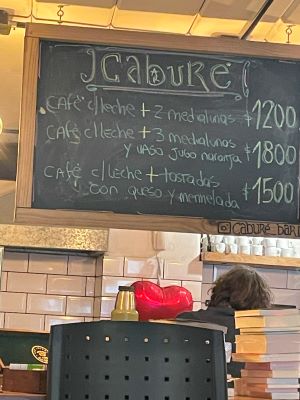 ¡CABURÉ!
CAFÉ c/LECHE + 2 medialunas $1200
CAFÉ c/LECHE + 3 medialunas
y VASO JUGO NARANJA $1800
CAFÉ c/LECHE + tostadas
con queso y mermelada $1500